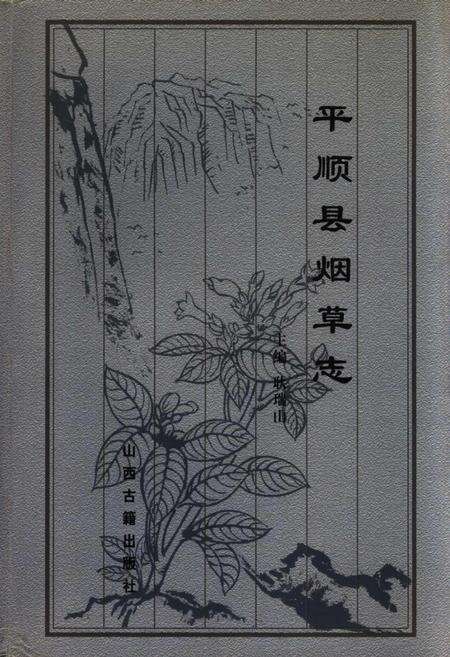 平顺县烟草志
主编 耿瑞山
山西古籍出版社